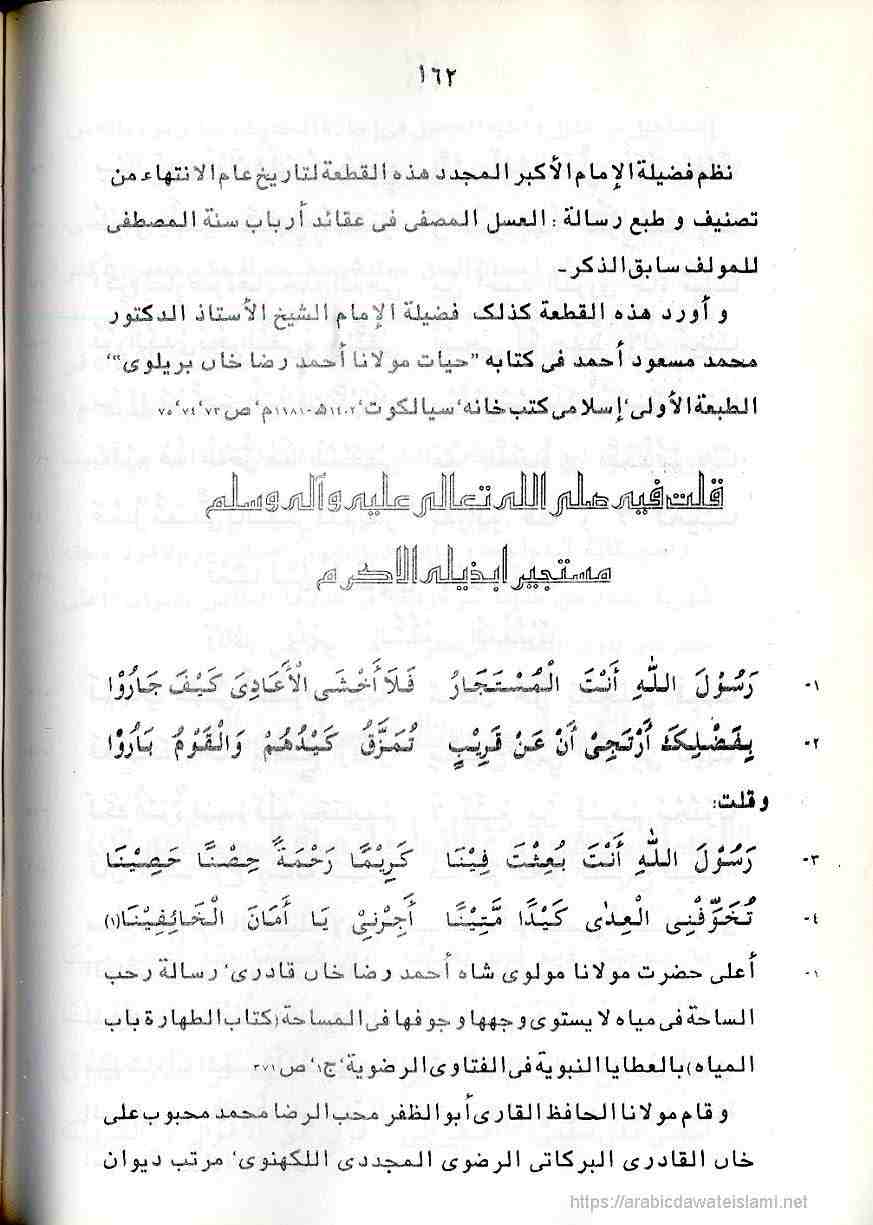 ١٦٢
نظم فضيلة الإمام الأكبر المجدد هذه القطعة لتاريخ عام الانتهاء من
تصنيف و طبع رسالة : العسل المصفى فى عقائد أرباب سنة المصطفى
للمولف سابق الذكر-
و أورد هذه القطعة كذلك فضيلة الإمام الشيخ الأستاذ الدكتور
محمد مسعود أحمد فى كتابه "حيات مولانا أحمد رضا خاں بريلوى"،
الطبعة الأولى، إسلامى كتب خانه، سيالكوت، ١٤٠٢ھ-١٩٨١م، ص ٧٣، ٧٤، ٧٥
قلت فيه صلى الله تعالى عليه وآله وسلم
مستجيرا بذيله الاكرم
١- رَسُوْلَ اللّٰهِ أَنْتَ الْمُسْتَجَارُ فَلَا أَخْشَى الْأَعَادِىَ كَيْفَ جَارُوْا
٢- بِفَضْلِكَ أَرْتَجِىْ أَنْ عَنْ قَرِيْبٍ تُمَزَّقُ كَيْدُهُمْ وَالْقَوْمُ بَارُوْا
وقلت:
٣- رَسُوْلَ اللّٰهِ أَنْتَ بُعِثْتَ فِيْنَا كَرِيْمًا رَحْمَةً حِصْنًا حَصِيْنَا
٤- تُخَوِّفُنِى الْعِدٰى كَيْدًا مَّتِيْنًا أَجِرْنِىْ يَا أَمَانَ الْخَائِفِيْنَا(١)
١- أعلى حضرت مولانا مولوى شاه أحمد رضا خاں قادرى، رسالة رحب
الساحة فى مياه لا يستوى وجهها وجوفها فى المساحة (كتاب الطهارة باب
المياه) بالعطايا النبوية فى الفتاوى الرضوية، ج١، ص ٣٧١
و قام مولانا الحافظ القارى أبو الظفر محب الرضا محمد محبوب على
خاں القادرى البركاتى الرضوى المجددى اللكهنوى، مرتب ديوان
https://arabicdawateislami.net